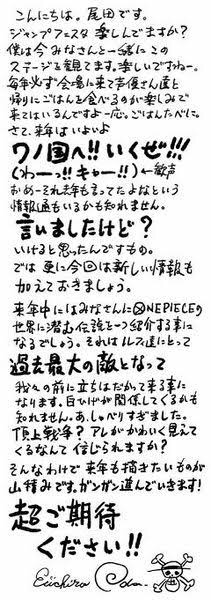 こんにちは。尾田です。
ジャンプフェスタ 楽しんでますか?
僕は今みなさんと一緒にこの
ステージを観てます。楽しいですねー。
毎年必ず会場に来て声優さん達と
帰りにごはんを食べるのが楽しみで
来てはいるんですよ一応。ごはんたべに。
さて、来年はいよいよ
ワノ国へ!!いくぜ!!!
(わーっ!!キャー!!)←歓声
おめーそれ去年も言ってたよなという
情報通もいるかも知れません。
言いましたけど?
いけると思ったんですもの。
では 更に今回は新しい情報も
加えておきましょう。
来年中にはみなさんにONEPIECEの
世界に潜む伝説を一つ紹介する事に
なるでしょう。それはルフィ達にとって
過去最大の敵となって
我々の前に立ちはだかって来る事に
なります。白ひげが関係してくるかも
知れません。あ、しゃべりすぎました。
頂上戦争?アレがかわいく見えて
くるなんて信じられますか?
そんなわけで来年も描きたいものが
山積みです。ガンガン進んでいきます!
超ご期待
ください!!
Eiichiro Oda